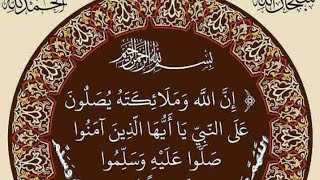 سبحان الله
الحمد لله
بسم الله الرحمن الرحيم
﴿ إِنَّ اللَّهَ وَمَلَائِكَتَهُ يُصَلُّونَ
عَلَى النَّبِيِّ يَا أَيُّهَا الَّذِينَ آمَنُوا
صَلُّوا عَلَيْهِ وَسَلِّمُوا
اللهم